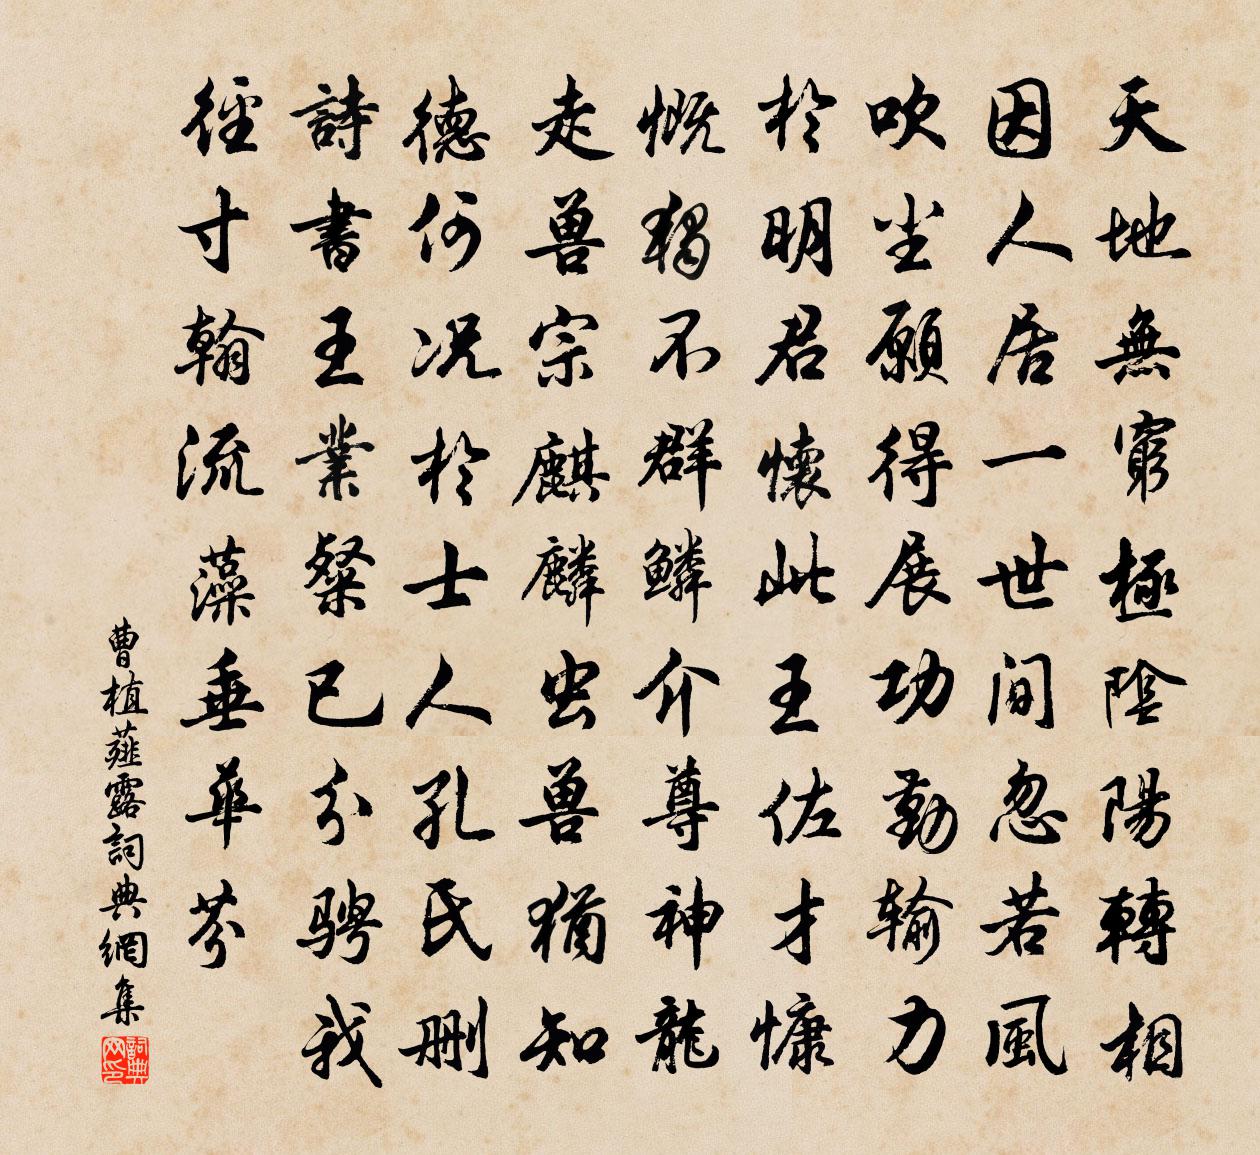 天地無窮極陰陽轉相
因人居一世間忽若風
吹尘願得展功勤输力
於明君懷此王佐才慷
慨獨不群鳞介尊神龍
走兽宗麒麟虫兽猶知
德何况於士人孔氏删
詩書王業粲已分骋我
徑寸翰流藻垂華芬
曹植薤露詞典網集
詞典网印